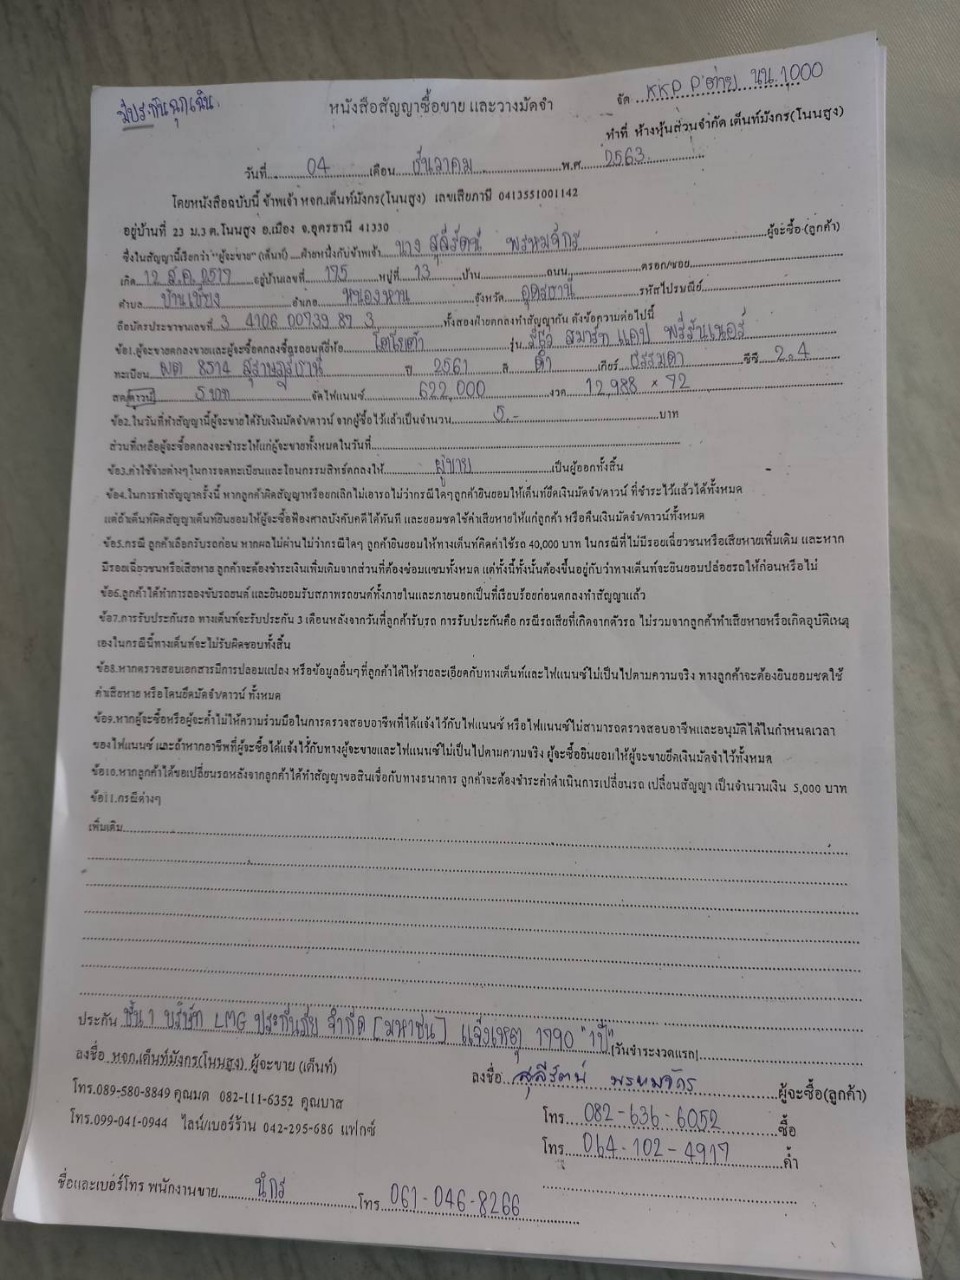 มีประกันฉุกเฉิน
จัด KKP P'ต่าย นน.1000
หนังสือสัญญาซื้อขาย และวางมัดจำ
ทำที่ ห้างหุ้นส่วนจำกัด เต็นท์มังกร(โนนสูง)
วันที่ 04 เดือน ธันวาคม พ.ศ 2563
โดยหนังสือฉบับนี้ ข้าพเจ้า หจก.เต็นท์มังกร(โนนสูง) เลขเสียภาษี 0413551001142
อยู่บ้านที่ 23 ม.3 ต.โนนสูง อ.เมือง จ.อุดรธานี 41330
ซึ่งในสัญญานี้เรียกว่า "ผู้จะขาย" (เต็นท์) ฝ่ายหนึ่งกับข้าพเจ้า นาง สุลีรัตน์ พรหมจักร ผู้จะซื้อ (ลูกค้า)
เกิด 12 ส.ค. 2517 อยู่บ้านเลขที่ 175 หมู่ที่ 13 บ้าน ถนน ตรอก/ซอย
ตำบล บ้านเชียง อำเภอ หนองหาน จังหวัด อุดรธานี รหัสไปรษณีย์
ถือบัตรประชาชนเลขที่ 3 4106 00739 87 3 ทั้งสองฝ่ายตกลงทำสัญญากัน ดังข้อความต่อไปนี้
ข้อ1.ผู้จะขายตกลงขายและผู้จะซื้อตกลงซื้อรถยนต์ยี่ห้อ โตโยต้า รุ่น รีโว่ สมาร์ท แคป พรีรันเนอร์
ทะเบียน ผต 8514 สุราษฎร์ธานี ปี 2561 สี ดำ เกียร์ ธรรมดา ซีซี 2.4
สด/ดาวน์ 5 บาท จัดไฟแนนซ์ 622,000 งวด 12,988 × 72
ข้อ2.ในวันที่ทำสัญญานี้ผู้จะขายได้รับเงินมัดจำ/ดาวน์ จากผู้ซื้อไว้แล้วเป็นจำนวน 5.- บาท
ส่วนที่เหลือผู้จะซื้อตกลงจะชำระให้แก่ผู้จะขายทั้งหมดในวันที่
ข้อ3.ค่าใช้จ่ายต่างๆในการจดทะเบียนและโอนกรรมสิทธิ์ตกลงให้ ผู้ขาย เป็นผู้ออกทั้งสิ้น
ข้อ4.ในการทำสัญญาครั้งนี้ หากลูกค้าผิดสัญญาหรือยกเลิกไม่เอารถไม่ว่ากรณีใดๆลูกค้ายินยอมให้เต็นท์ยึดเงินมัดจำ/ดาวน์ ที่ชำระไว้แล้วได้ทั้งหมด
แต่ถ้าเต็นท์ผิดสัญญาเต็นท์ยินยอมให้ผู้จะซื้อฟ้องศาลบังคับคดีได้ทันที และยอมชดใช้ค่าเสียหายให้แก่ลูกค้า หรือคืนเงินมัดจำ/ดาวน์ทั้งหมด
ข้อ5.กรณี ลูกค้าเลือกรับรถก่อน หากผลไม่ผ่านไม่ว่ากรณีใดๆ ลูกค้ายินยอมให้ทางเต็นท์คิดค่าใช้รถ 40,000 บาท ในกรณีที่ไม่มีรอยเฉี่ยวชนหรือเสียหายเพิ่มเติม และหาก
มีรอยเฉี่ยวชนหรือเสียหาย ลูกค้าจะต้องชำระเงินเพิ่มเติมจากส่วนที่ต้องซ่อมแซมทั้งหมด แต่ทั้งนี้ทั้งนั้นต้องขึ้นอยู่กับว่าทางเต็นท์จะยินยอมปล่อยรถให้ก่อนหรือไม่
ข้อ6.ลูกค้าได้ทำการลองขับรถยนต์ และยินยอมรับสภาพรถยนต์ทั้งภายในและภายนอกเป็นที่เรียบร้อยก่อนตกลงทำสัญญาแล้ว
ข้อ7.การรับประกันรถ ทางเต็นท์จะรับประกัน 3 เดือนหลังจากวันที่ลูกค้ารับรถ การรับประกันคือ กรณีรถเสียที่เกิดจากตัวรถ ไม่รวมจากลูกค้าทำเสียหายหรือเกิดอุบัติเหตุ
เองในกรณีนี้ทางเต็นท์จะไม่รับผิดชอบทั้งสิ้น
ข้อ8.หากตรวจสอบเอกสารมีการปลอมแปลง หรือข้อมูลอื่นๆที่ลูกค้าได้ให้รายละเอียดกับทางเต็นท์และไฟแนนซ์ไม่เป็นไปตามความจริง ทางลูกค้าจะต้องยินยอมชดใช้
ค่าเสียหาย หรือโดนยึดมัดจำ/ดาวน์ ทั้งหมด
ข้อ9.หากผู้จะซื้อหรือผู้จะค้ำไม่ให้ความร่วมมือในการตรวจสอบอาชีพที่ได้แจ้งไว้กับไฟแนนซ์ หรือไฟแนนซ์ไม่สามารถตรวจสอบอาชีพและอนุมัติได้ในกำหนดเวลา
ของไฟแนนซ์ และถ้าหากอาชีพที่ผู้จะซื้อได้แจ้งไว้กับทางผู้จะขายและไฟแนนซ์ไม่เป็นไปตามความจริง ผู้จะซื้อยินยอมให้ผู้จะขายยึดเงินมัดจำไว้ทั้งหมด
ข้อ10.หากลูกค้าได้ขอเปลี่ยนรถหลังจากลูกค้าได้ทำสัญญาขอสินเชื่อกับทางธนาคาร ลูกค้าจะต้องชำระค่าดำเนินการเปลี่ยนรถ เปลี่ยนสัญญา เป็นจำนวนเงิน 5,000 บาท
ข้อ11.กรณีต่างๆ
เพิ่มเติม
ประกัน ชั้น 1 บริษัท LMG ประกันภัย จำกัด [มหาชน] แจ้งเหตุ 1790 "1ปี" [วันชำระงวดแรก]
ลงชื่อ หจก.เต็นท์มังกร(โนนสูง) ผู้จะขาย (เต็นท์)
ลงชื่อ สุลีรัตน์ พรหมจักร ผู้จะซื้อ(ลูกค้า)
โทร.089-580-8849 คุณมด 082-111-6352 คุณบาส
โทร 082-636-6052 ซื้อ
โทร.099-041-0944 ไลน์/เบอร์ร้าน 042-295-686 แฟกซ์
โทร 064-102-4917 ค้ำ
ชื่อและเบอร์โทร พนักงานขาย นิกร โทร 061-046-8266